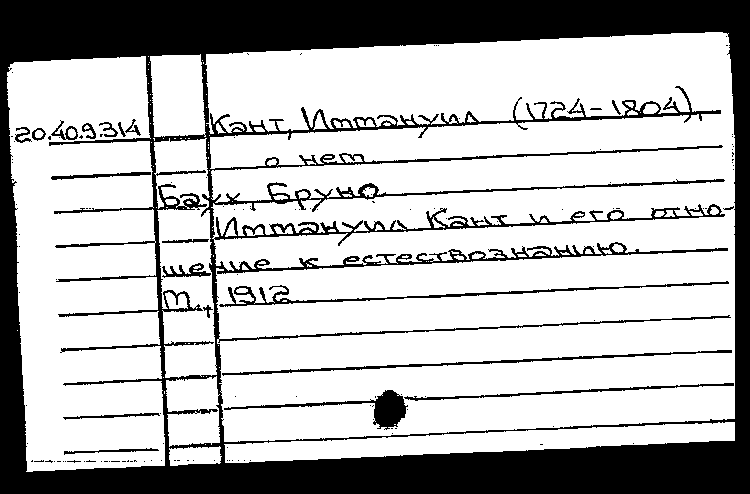 20.40.9.314 Кант, Иммануил (1724-1804),
о нем.
Баух, Бруно
Иммануил Кант и его отно-
шение к естествознанию.
М., 1912